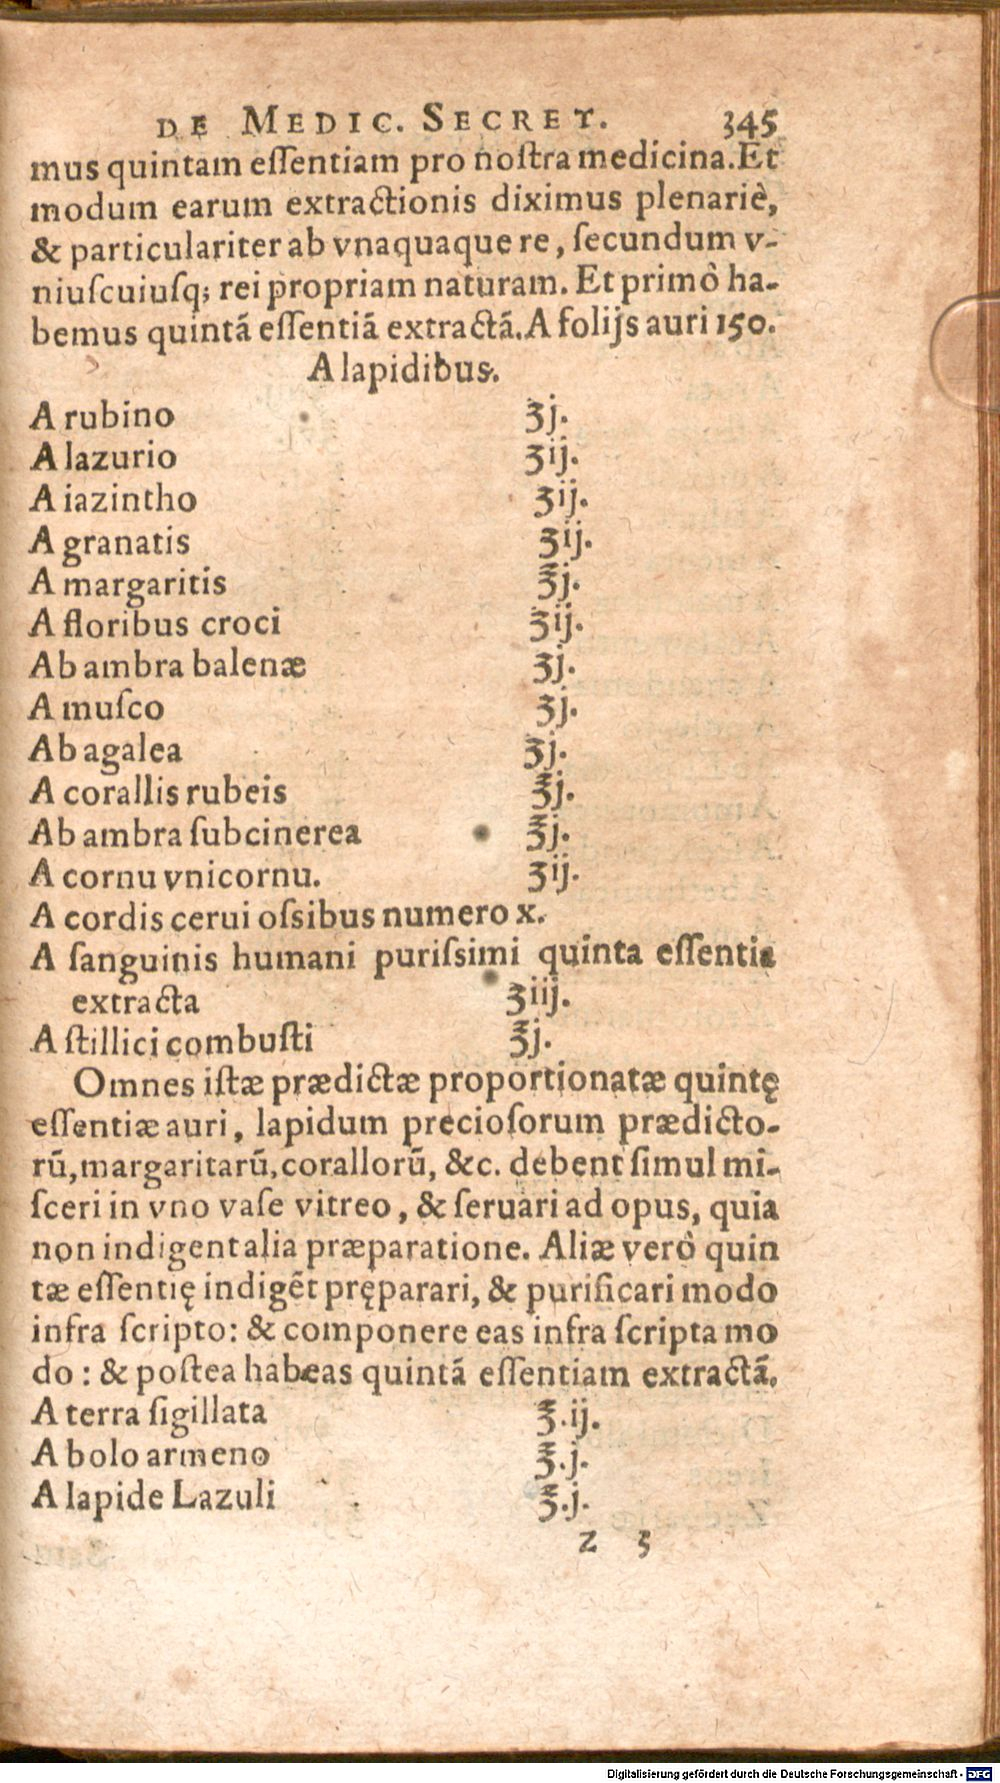 DE MEDIC. SECRET. 345
mus quintam eſſentiam pro noſtra medicina. Et
modum earum extractionis diximus plenariè,
& particulariter ab vnaquaque re, ſecundum v-
niuſcuiuſq; rei propriam naturam. Et primò ha-
bemus quintā eſſentiā extractā. A folijs auri 150.
A lapidibus.
A rubino ʒj.
A lazurio ʒij.
A iazintho ʒij.
A granatis ʒij.
A margaritis ℥j.
A floribus croci ʒij.
Ab ambra balenæ ʒj.
A muſco ʒj.
Ab agalea ʒj.
A corallis rubeis ℥j.
Ab ambra ſubcinerea ℥j.
A cornu vnicornu. ʒij.
A cordis cerui oſsibus numero x.
A ſanguinis humani puriſsimi quinta eſſentia
extracta ʒiij.
A ſtillici combuſti ℥j.
Omnes iſtæ prædictæ proportionatæ quintę
eſſentiæ auri, lapidum precioſorum prædicto-
rū, margaritarū, corallorū, &c. debent ſimul mi-
ſceri in vno vaſe vitreo, & ſeruari ad opus, quia
non indigent alia præparatione. Aliæ verò quin
tæ eſſentię indigēt pręparari, & purificari modo
infra ſcripto: & componere eas infra ſcripta mo
do: & poſtea habeas quintā eſſentiam extractā.
A terra ſigillata ℥.ij.
A bolo armeno ℥.j.
A lapide Lazuli ℥.j.
z 5
Digitalisierung gefördert durch die Deutsche Forschungsgemeinschaft - DFG